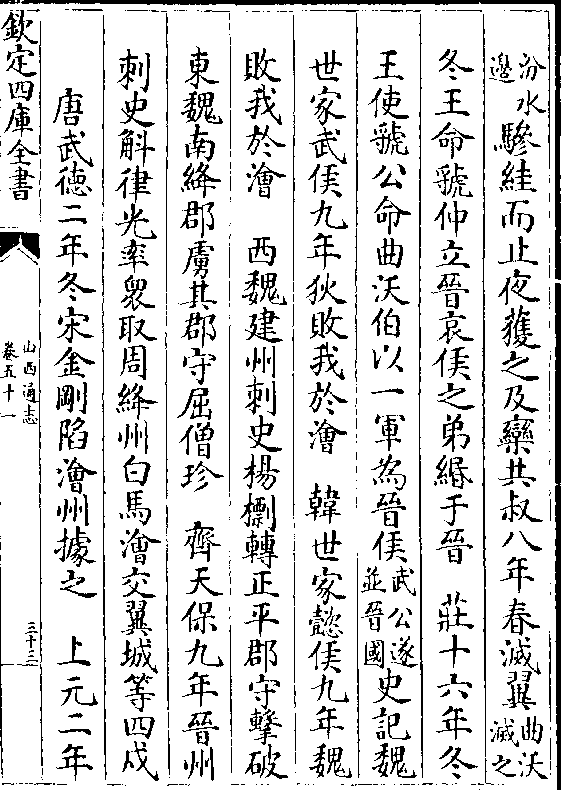 汾水邊驂絓而止夜獲之及欒共叔八年春滅翼曲沃滅之
冬王命虢仲立晉哀侯之弟緡于晉　莊十六年冬
王使虢公命曲沃伯以一軍為晉侯武公遂並晉國史記魏
世家武侯九年狄敗我於澮　韓世家懿侯九年魏
敗我於澮　西魏建州刺史楊𢷋轉正平郡守擊破
東魏南絳郡虜其郡守屈僧珍　齊天保九年晉州
刺史斛律光率衆取周絳州白馬澮交翼城等四戍
唐武德二年冬宋金剛陷澮州據之　上元二年
欽定四庫全書
山西通志
卷五十一
三十三